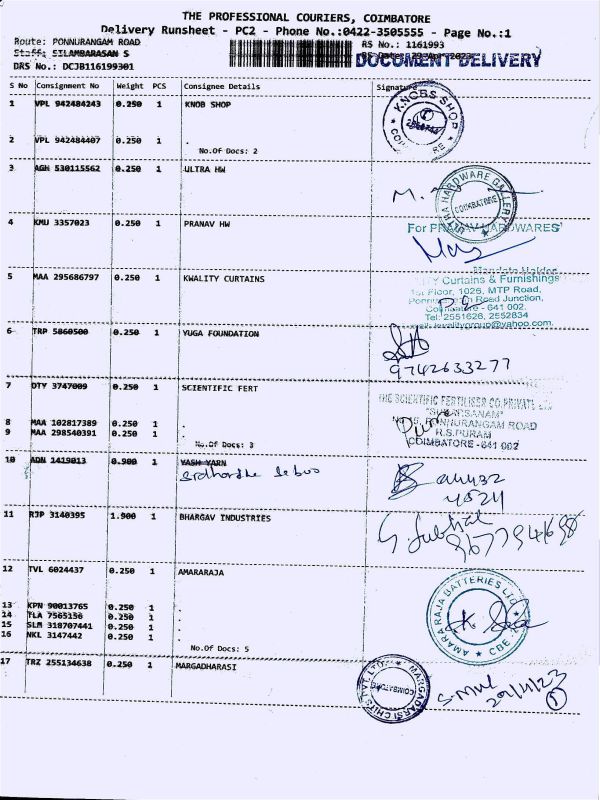 THE PROFESSIONAL COURIERS, COIMBATORE
Delivery Runsheet - PC2 - Phone No.:0422-3505555 - Page No.:1
Route: PONNURANGAM ROAD
RS No.: 1161993
Staff: SILAMBARASAN S
RS Date: 29-Apr-2023
DRS No.: DCJB116199301
DOCUMENT DELIVERY
S No Consignment No Weight PCS Consignee Details Signature
1 VPL 942484243 0.250 1 KNOB SHOP
KNOBS SHOP
2 VPL 942484407 0.250 1 .
No.Of Docs: 2
3 AGH 530115562 0.250 1 ULTRA HW
ULTRA HARDWARE GALLERY
COIMBATORE
4 KMU 3357023 0.250 1 PRANAV HW
For PRANAV HARDWARES
5 MAA 295686797 0.250 1 KWALITY CURTAINS
Curtains & Furnishings
1st Floor, 1026, MTP Road,
Ponnurangam Road Junction,
Coimbatore - 641 002.
Tel: 2551626, 2552834
6 TRP 5860500 0.250 1 YUGA FOUNDATION
9742633277
7 DTY 3747009 0.250 1 SCIENTIFIC FERT
THE SCIENTIFIC FERTILISER CO. PRIVATE
PONNURANGAM ROAD
R.S.PURAM
COIMBATORE - 641 002
8 MAA 102817389 0.250 1 .
9 MAA 298540391 0.250 1 .
No.Of Docs: 3
10 ADN 1419013 0.900 1 YASH YARN
11 RJP 3140395 1.900 1 BHARGAV INDUSTRIES
12 TVL 6024437 0.250 1 AMARARAJA
AMARA RAJA BATTERIES LTD
CBE
13 KPN 90013765 0.250 1 .
14 TLA 7565156 0.250 1 .
15 SLM 318707441 0.250 1 .
16 NKL 3147442 0.250 1 .
No.Of Docs: 5
17 TRZ 255134638 0.250 1 MARGADHARASI
MARGADARSI CHITS PVT. LTD.
COIMBATORE
29/4/23